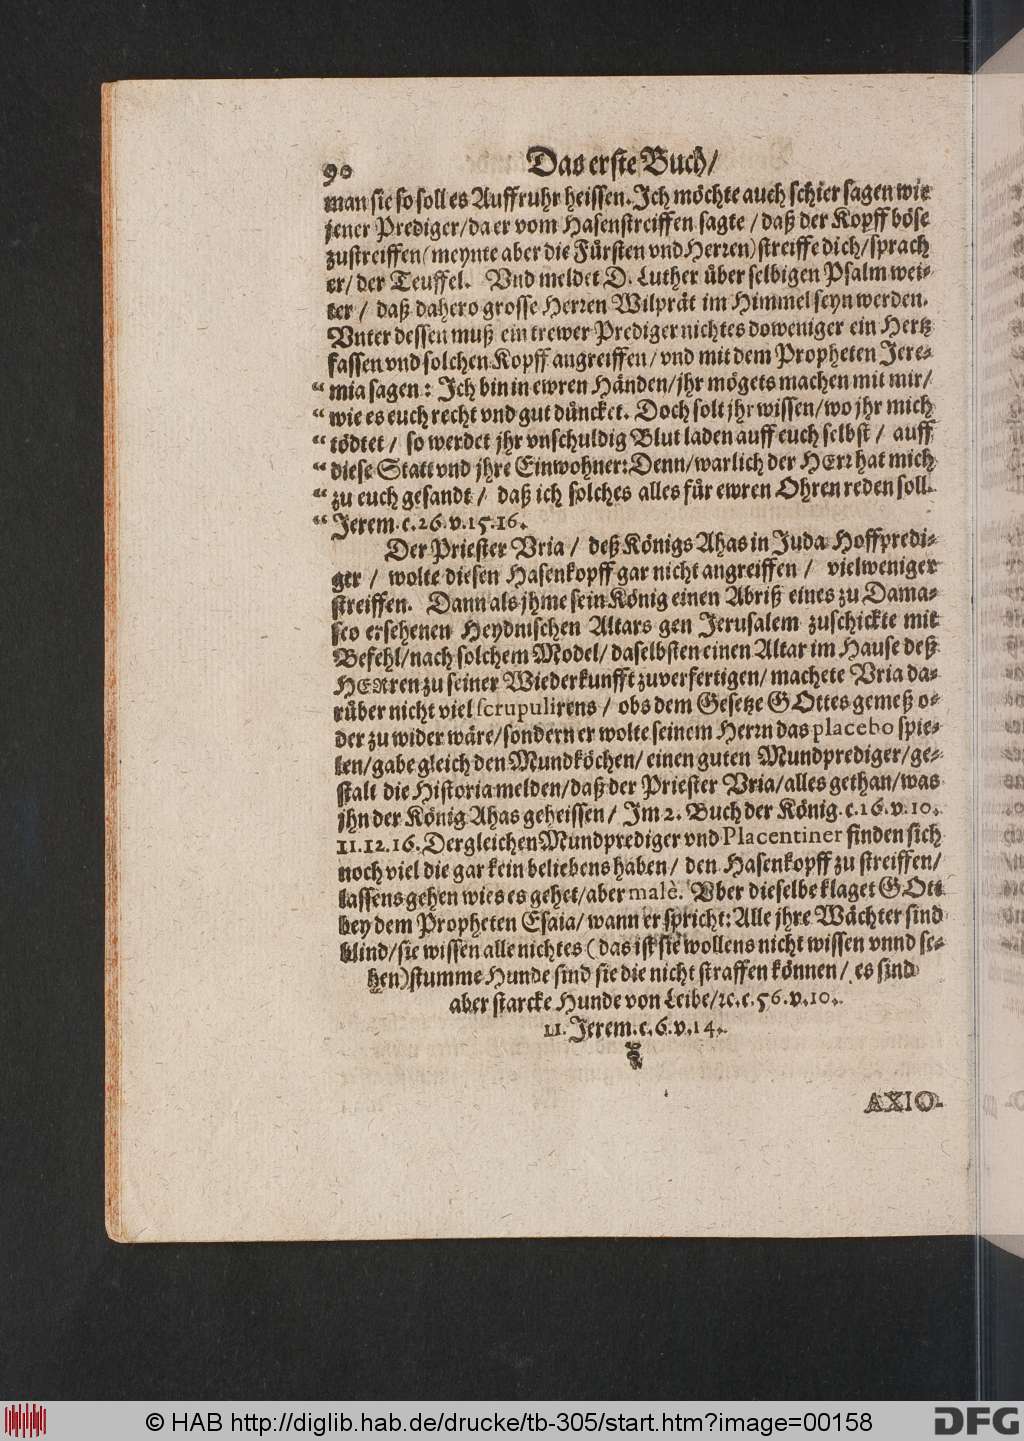 90 Das erste Buch/
man sie so soll es Auffruhr heissen. Ich möchte auch schier sagen wie
jener Prediger/ da er vom Hasenstreiffen sagte / daß der Kopff böse
zustreiffen (meynte aber die Fürsten vnd Herren) streiffe dich/ sprach
er/ der Teuffel. Vnd meldet D. Luther über selbigen Psalm wei-
ter / daß dahero grosse Herren Wilprät im Himmel seyn werden.
Vnter dessen muß ein trewer Prediger nichtes doweniger ein Hertz
fassen vnd solchen Kopff angreiffen/ vnd mit dem Propheten Jere-
“ mia sagen: Ich bin in ewren Händen/ jhr mögets machen mit mir/
“ wie es euch recht vnd gut düncket. Doch solt jhr wissen/ wo jhr mich
“ tödtet / so werdet jhr vnschuldig Blut laden auff euch selbst / auff
“ diese Statt vnd jhre Einwohner: Denn/ warlich der HErr hat mich
“ zu euch gesandt / daß ich solches alles für ewren Ohren reden soll.
“ Jerem. c. 26. v. 15. 16.
Der Priester Vria / deß Königs Ahas in Juda Hoffpredi-
ger / wolte diesen Hasenkopff gar nicht angreiffen / vielweniger
streiffen. Dann als jhme sein König einen Abriß eines zu Dama-
sco ersehenen Heydnischen Altars gen Jerusalem zuschickte mit
Befehl/ nach solchem Model/ daselbsten einen Altar im Hause deß
HERren zu seiner Wiederkunfft zuverfertigen/ machete Vria da-
rüber nicht viel scrupulirens / obs dem Gesetze GOttes gemeß o-
der zu wider wäre/ sondern er wolte seinem Herrn das placebo spie-
len/ gabe gleich den Mundköchen/ einen guten Mundprediger/ ge-
stalt die Historia melden/ daß der Priester Vria/ alles gethan/ was
jhn der König Ahas geheissen / Im 2. Buch der König. c. 16. v. 10.
11. 12. 16. Dergleichen Mundprediger vnd Placentiner finden sich
noch viel die gar kein beliebens haben / den Hasenkopff zu streiffen/
lassens gehen wies es gehet/ aber malè. Vber dieselbe klaget GOtt
bey dem Propheten Esaia/ wann er spricht: Alle jhre Wächter sind
blind/ sie wissen alle nichtes (das ist sie wollens nicht wissen vnnd se-
hen) stumme Hunde sind sie die nicht straffen können / es sind
aber starcke Hunde von Leibe/ ꝛc. c. 56. v. 10.
11. Jerem. c. 6. v. 14.
AXIO-
© HAB http://diglib.hab.de/drucke/tb-305/start.htm?image=00158
DFG